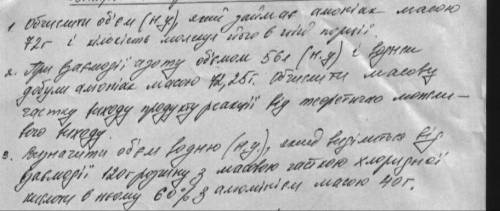 1. Обчислити об'єм (н.у), який займає амоніак масою
72г і кількість молекул його в цій порції.
2. При взаємодії азоту об'ємом 56л (н.у) і водню
добули амоніак масою 72,25г. Обчислити масову
частку виходу продукту реакції від теоретично можли-
вого виходу.
3. Визначити об'єм водню (н.у.), який виділиться від
взаємодії 120г розчину з масовою часткою хлоридної
кислоти в ньому 60% з алюмінієм масою 40г.